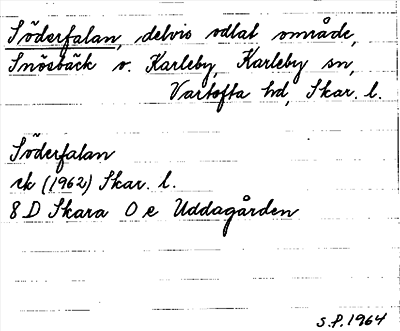 Söderfalan, delvis odlat område,
Snösbäck o. Karleby, Karleby sn,
Vartofta hd, Skar. l.
Söderfalan
rk (1962) Skar. l.
8 D Skara 0 e Uddagården
S.F. 1964